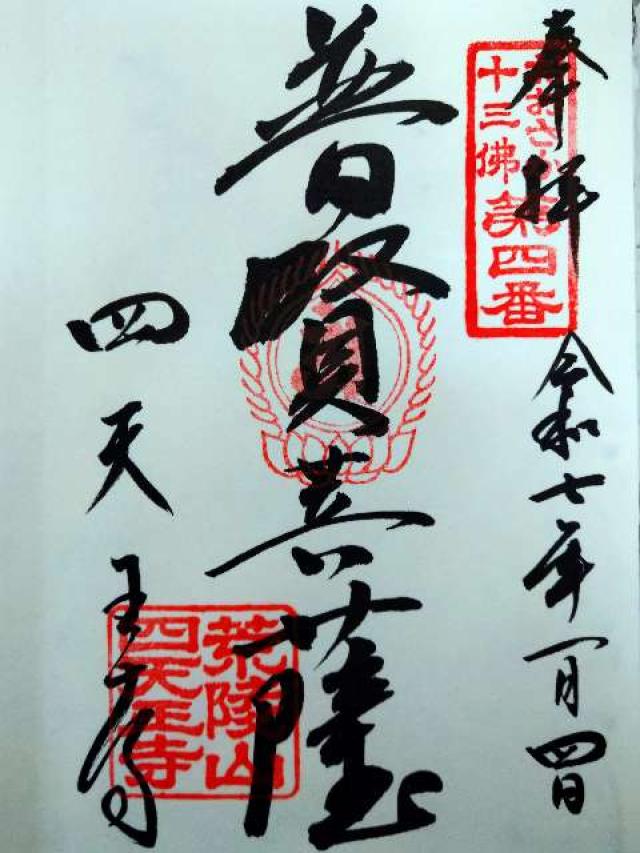 奉拝
おおさか
十三佛
第四番
令和七年一月四日
普賢菩薩
四天王寺
荒陵山
四天王寺